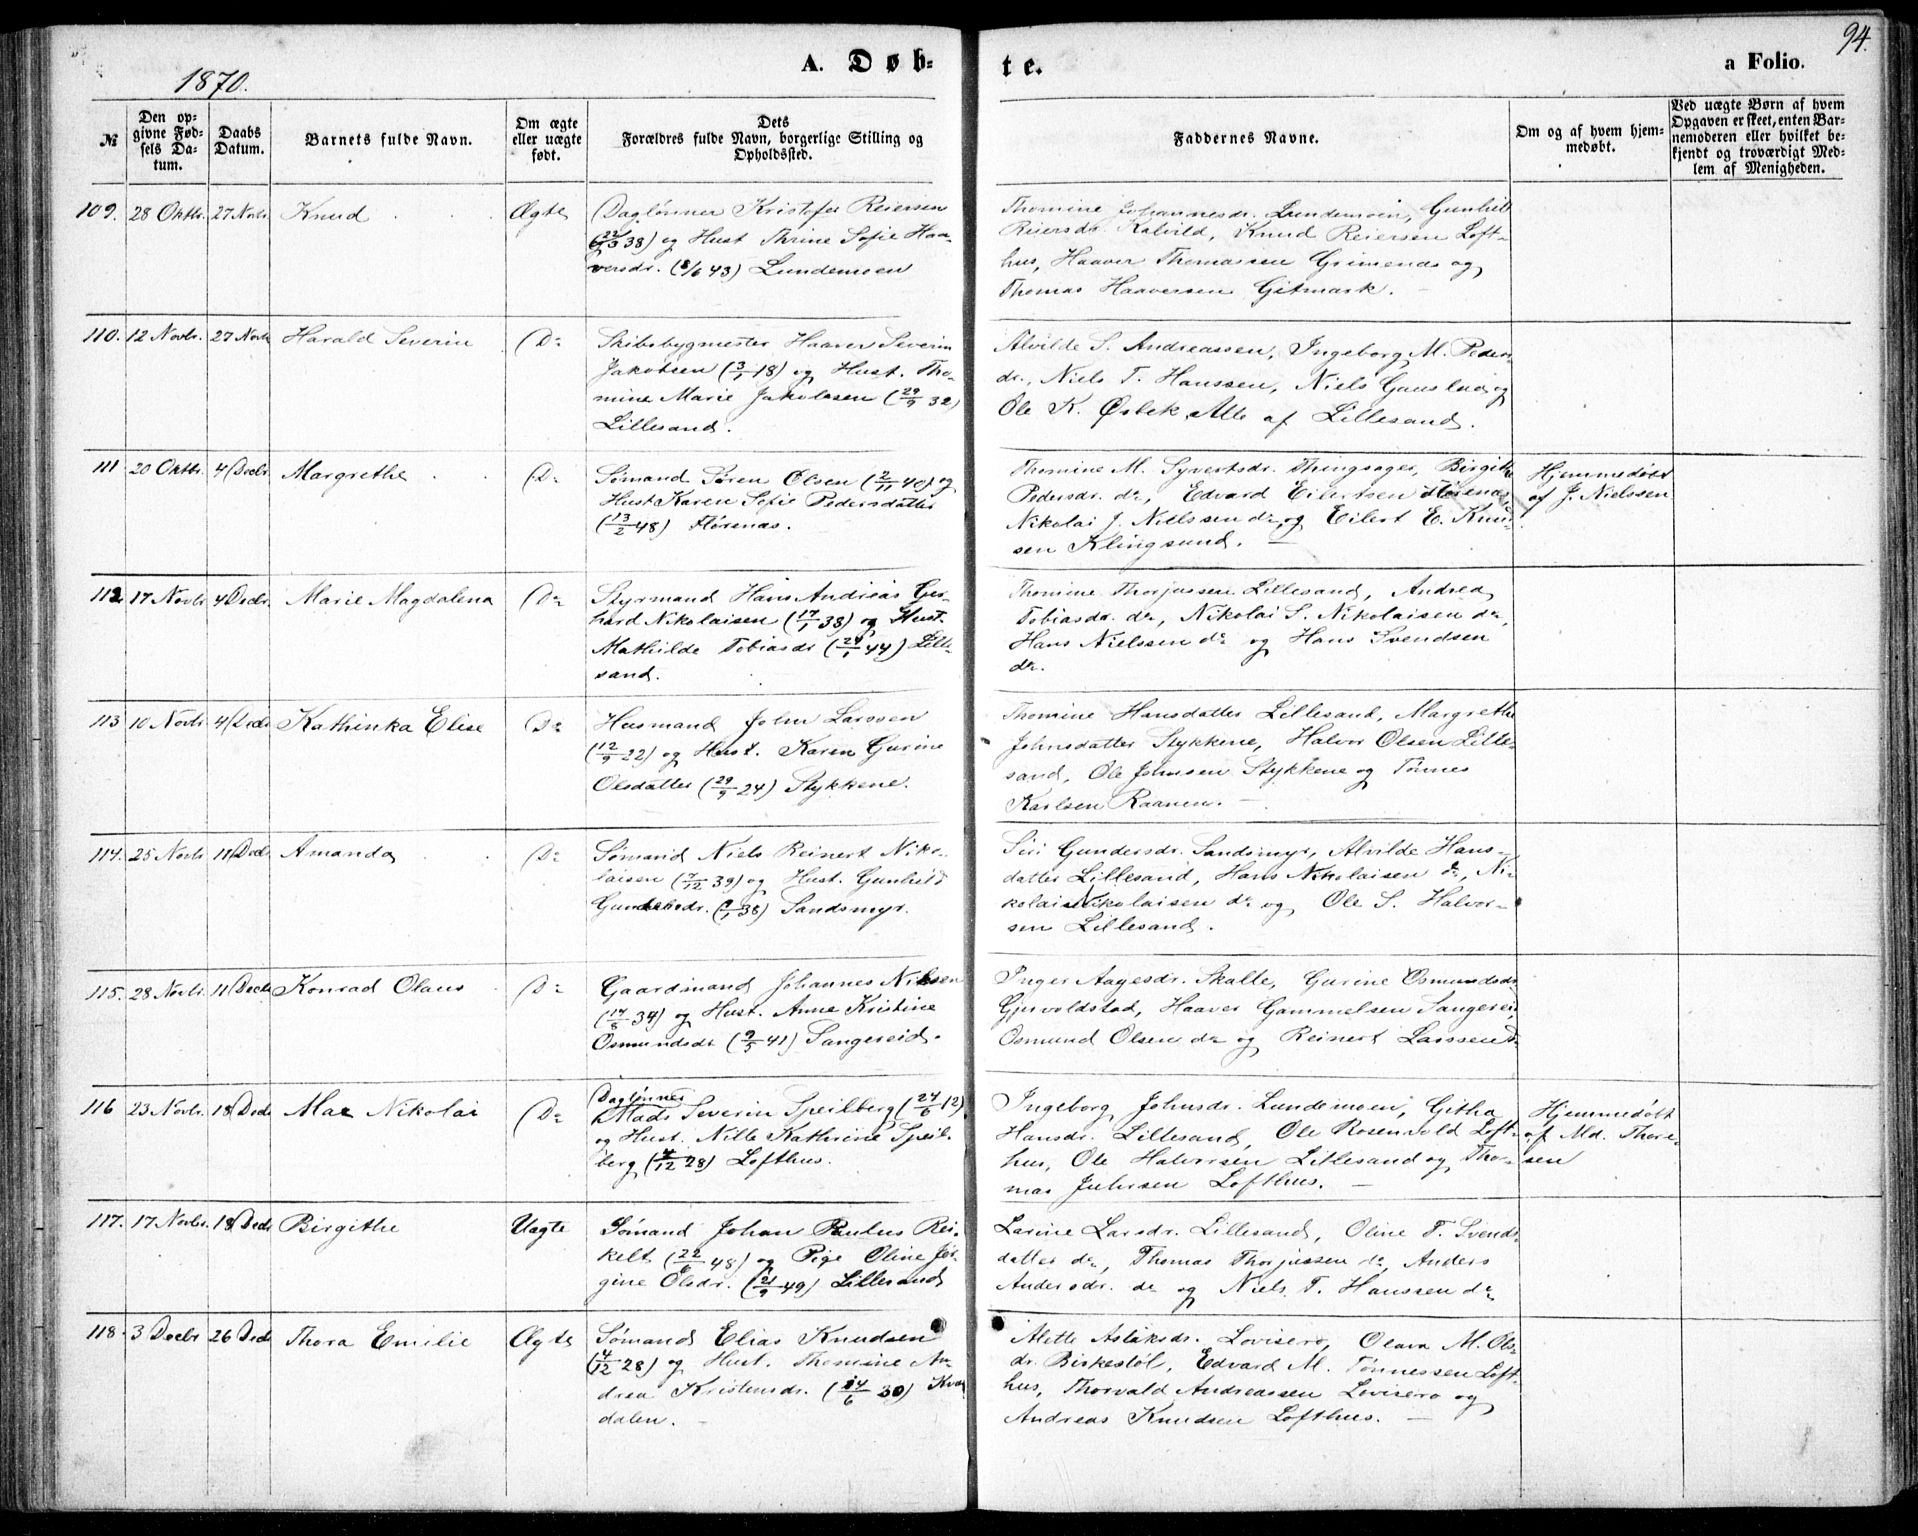 94.
1870.
A. Døb-
te.
a Folio.
№
Den op-
givne Fød-
sels Da-
tum.
Daabs
Datum.
Barnets fulde Navn.
Om ægte
eller uægte
født.
Dets
Forældres fulde Navn, borgerlige Stilling og
Opholdssted.
Faddernes Navne.
Om og af hvem hjem-
medøbt.
Ved uægte Børn af hvem
Opgaven er skeet, enten Bar-
nemoderen eller hvilket be-
kjendt og troværdigt Med-
lem af Menigheden.
109. 28 Oktbr. 27 Novbr. Knud Ægte
Daglønner Kristofer Reiersen
38) og Hust Thrine Sofie Haa-
versdr. (8/6 43) Lundemoen
Thomine Johannesdr. Lundemoen, Gunhild
Reiersdr Kalvild, Knud Reiersen Loft-
hus, Haaver Thomassen Grimenes og
Thomas Haaversen Gitmark. —
110. 12 Novbr. 27 Novbr Harald Severin Do
Skibsbygmester Haaver Severin
Jakobsen (3/1 18) og Hust. Tho-
mine Marie Jakobsen (29/9 32)
Lillesand.
Alvilde S. Andreassen, Ingeborg M. Peders
dr., Niels T. Hanssen, Niels Gauslaa og
Ole K. Østek Alle af Lillesand.
111 20 Oktbr. 4 Decbr Margrethe Do
Sømand Søren Olsen (2/11 40) og
Hust Karen Sofie Pedersdatter
(13/2 48) Flørenæs.
Thomine M. Syvertsdr. Thingsager, Birgithe
Pedersdr. do, Edvard Eilertsen Flørenæs,
Nikolai J. Nielssen do og Eilert E. Knud
sen Klingsund. —
Hjemmedøbt
af J. Nielssen
112. 17 Novbr 4 Decbr. Marie Magdalena Do
Styrmand Hans Andreas Ger-
hard Nikolaisen (17/1 38) og Hust.
Mathilde Tobiasdr (24/1 44) Lille-
sand.
Thomine Thorjussen Lillesand, Andrea
Tobiasdr. do, Nikolai S. Nikolaisen do,
Hans Nielssen do og Hans Svendsen
do.
113 10 Novbr 4 Decbr Kathinka Elise Do
Husmand John Larssen
(12/9 22) og Hust. Karen Gurine
Olsdatter (29/9 24) Stykkene.
Thomine Hansdatter Lillesand, Margrethe
Johnsdatter Stykkene, Halvor Olsen Lille-
sand, Ole Johnsen Stykkene og Tønnes
Karlsen Raanen. —
114. 25 Novbr 11 Decbr Amanda Do
Sømand Niels Reinert Niko-
laisen (7/12 39) og Hust. Gunhild
Gundersdr. 38) Sandsmyr.
Siri Gundersdr. Sandsmyr, Alvilde Hans-
datter Lillesand, Hans Nikolaisen do, Ni-
kolai Nikolaisen do og Ole S. Halvor-
sen Lillesand.
115. 28 Novbr. 11 Decbr Konrad Olaus Do
Gaardmand Johannes Nilsen
(17/8 34) og Hust. Anne Kristine
Osmundsdr (9/5 41) Sangereid.
Inger Aagesdr. Skalle, Gurine Osmundsdr
Gjervoldstad, Haaver Gammelsen Sangereid,
Osmund Olsen do og Reinert Larssen do
116 23 Novbr. 18 Decbr Max Nikolai Do
Daglønner
Mads Severin Speilberg (24/6 12)
og Hust. Nille Kathrine Speil-
berg (4/12 28) Lofthus.
Ingeborg Johnsdr. Lundemoen, Githa
Hansdr. Lillesand, Ole Rosenvold Loft-
hus, Ole Halvorsen Lillesand og Tho-
mas Juhlsen Lofthus. —
Hjemmedøbt
af Md. Thore-
sen
117. 17 Novbr. 18 Decbr Birgithe Uægte
Sømand Johan Paulus Rei-
kelt (22/6 48) og Pige Oline Jør-
gine Olsdr. (21/9 49) Lillesand
Larine Larsdr. Lillesand, Oline T. Svends-
datter do, Thomas Thorjussen do, Anders
Andersdr. do og Niels T. Hanssen do
118. 3 Decbr 26 Decbr Thora Emilie Ægte
Sømand Elias Knudsen
(4/12 28) og Hust. Thomine An-
drea Kristensdr. (14/6 30) Kva-
dalen. —
Alette Aslaksdr. Lovisero, Olava M. Ols-
dr. Birkestøl, Edvard M. Tønnessen Loft-
hus, Thorvald Andreassen Lovisero og
Andreas Knudsen Lofthus. —